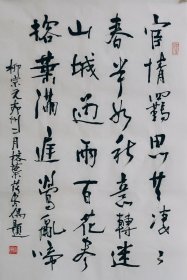 宦情羈思共凄〻
春半如秋意轉迷
山城過雨百花尽
榕葉滿庭鶯亂啼
柳宗元柳州二月榕葉落尽偶題